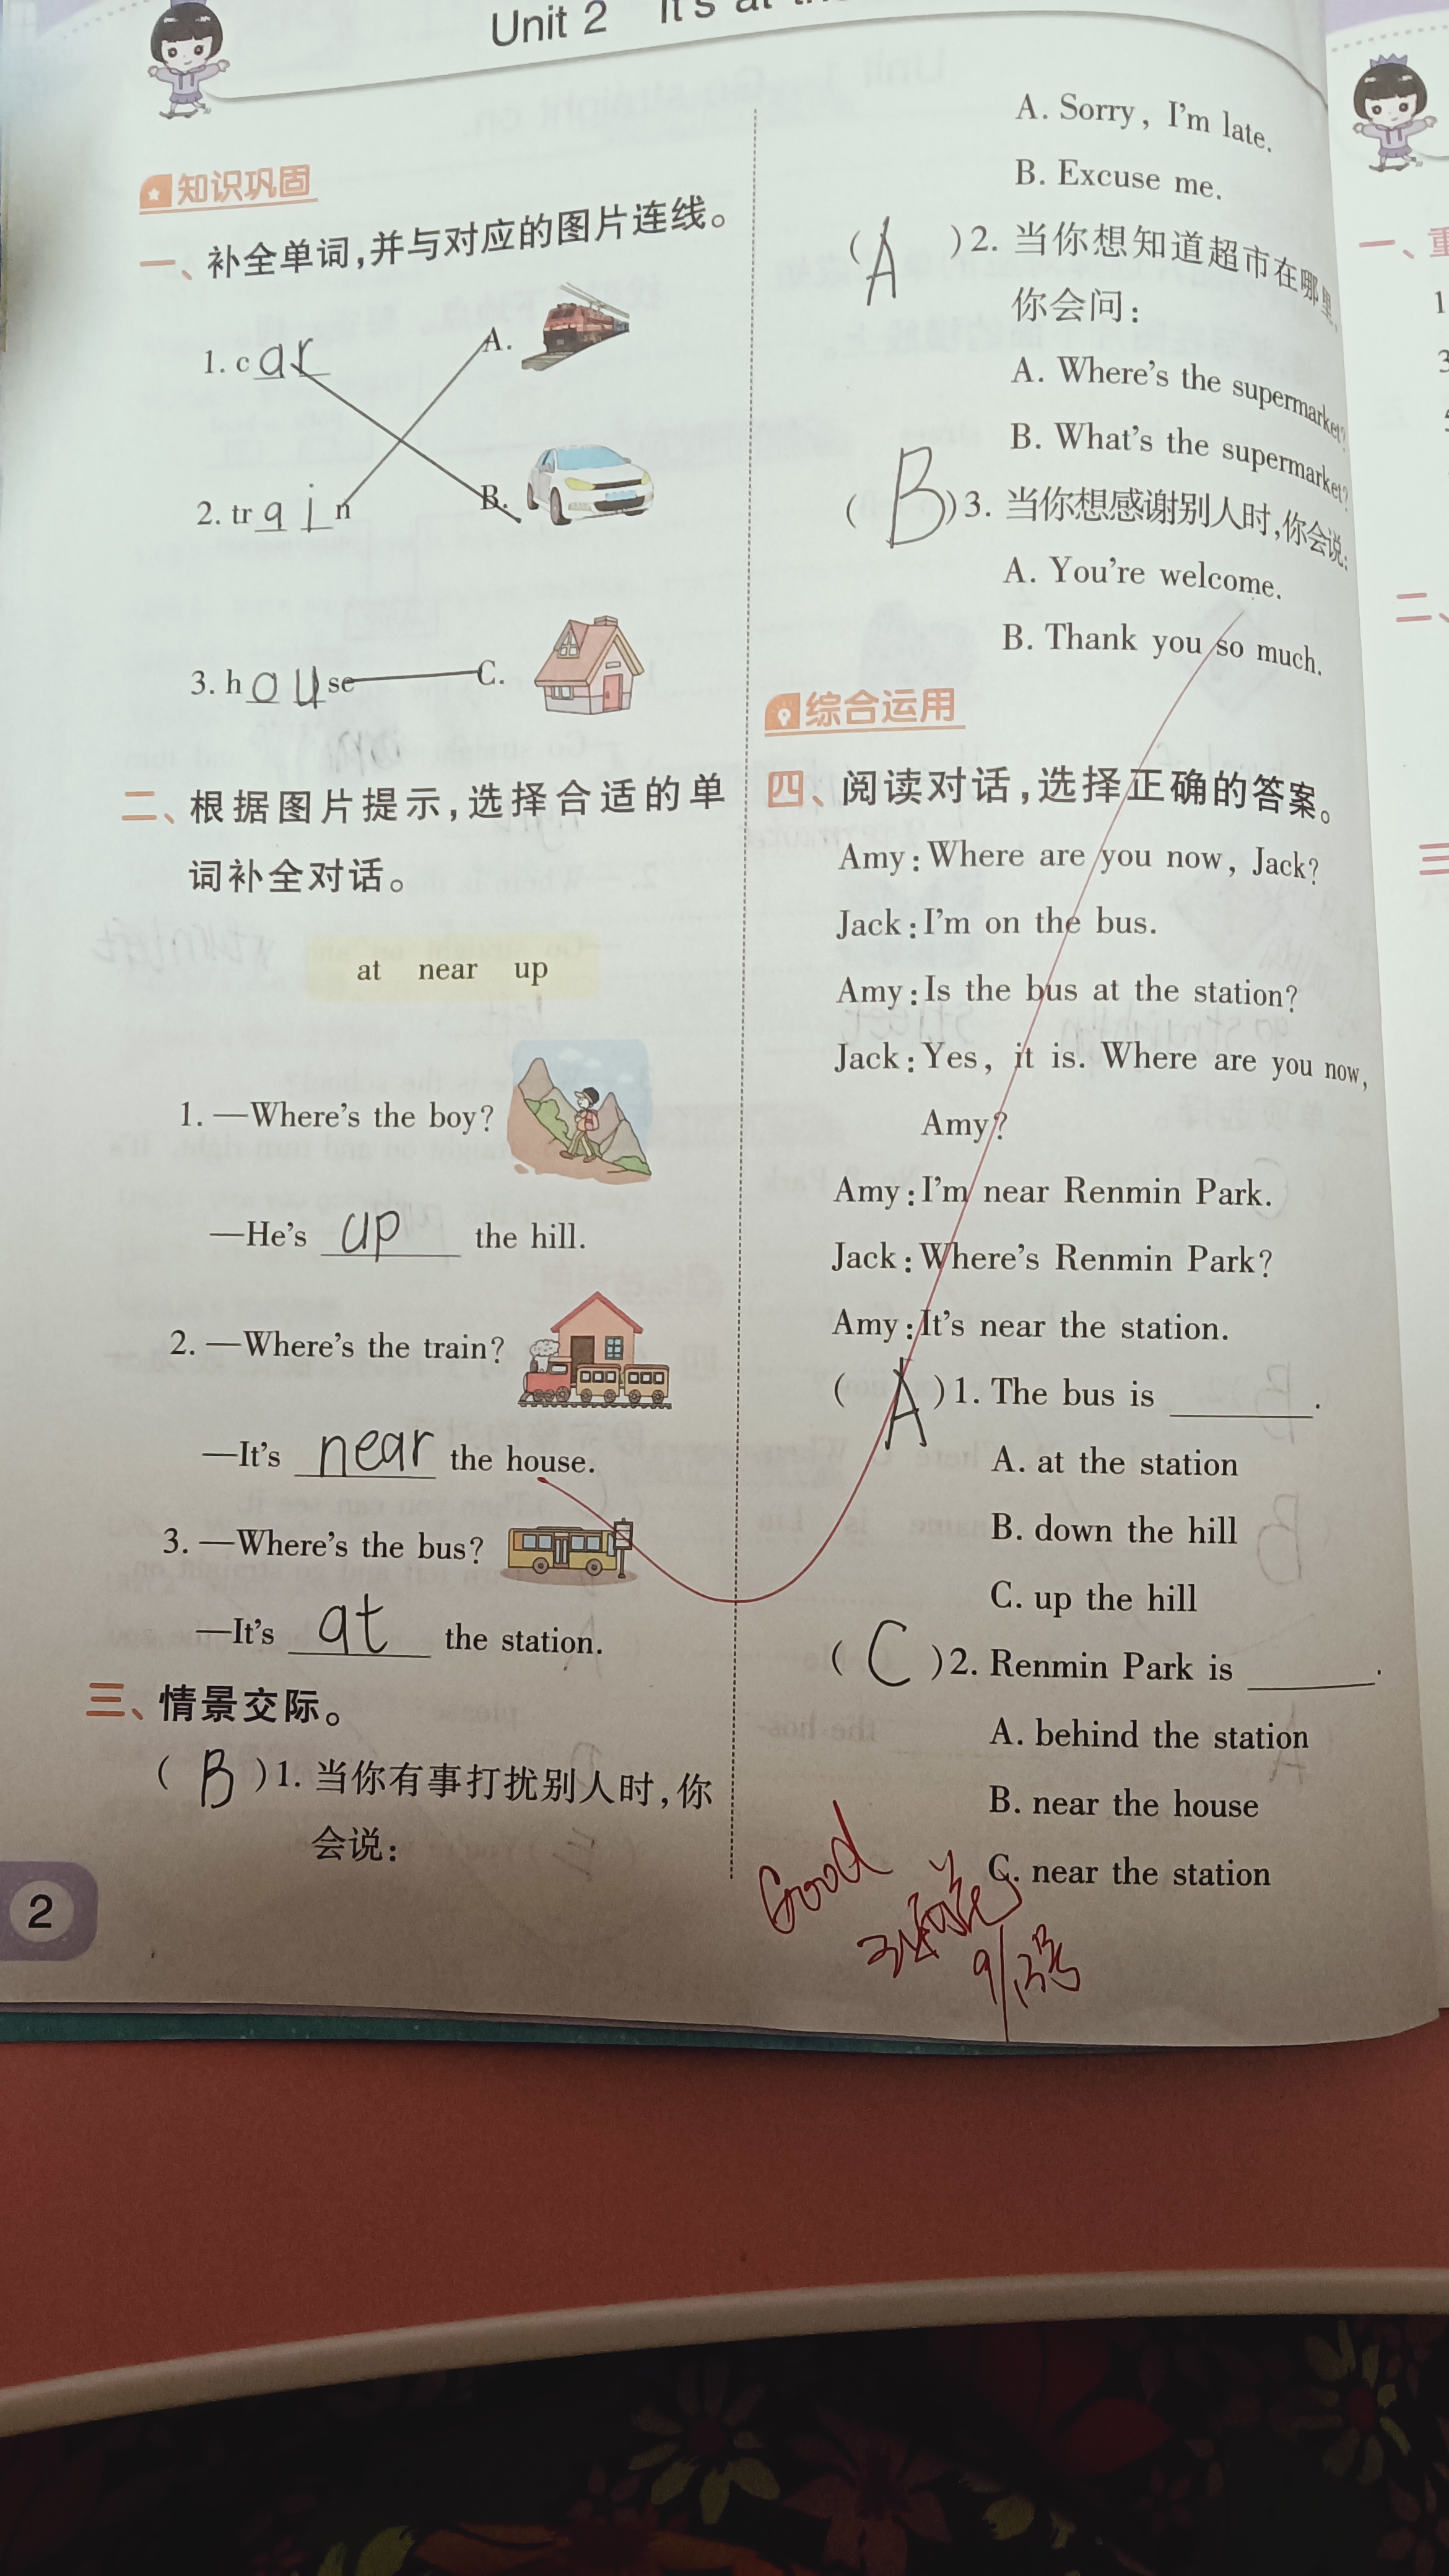 Unit 2 It's at
知识巩固
一、补全单词,并与对应的图片连线。
1. car
A.
2. train
B.
3. house
C.
二、根据图片提示,选择合适的单
词补全对话。
at near up
1. —Where's the boy?
—He's up the hill.
2. —Where's the train?
—It's near the house.
3. —Where's the bus?
—It's at the station.
三、情景交际。
( B )1. 当你有事打扰别人时,你
会说:
2
A. Sorry, I'm late.
B. Excuse me.
( A )2. 当你想知道超市在哪里,
你会问:
A. Where's the supermarket?
B. What's the supermarket?
( B )3. 当你想感谢别人时,你会说:
A. You're welcome.
B. Thank you so much.
综合运用
四、阅读对话,选择正确的答案。
Amy: Where are you now, Jack?
Jack: I'm on the bus.
Amy: Is the bus at the station?
Jack: Yes, it is. Where are you now,
Amy?
Amy: I'm near Renmin Park.
Jack: Where's Renmin Park?
Amy: It's near the station.
( A )1. The bus is ______.
A. at the station
B. down the hill
C. up the hill
( C )2. Renmin Park is ______.
A. behind the station
B. near the house
C. near the station
Good
一、重
二、
三